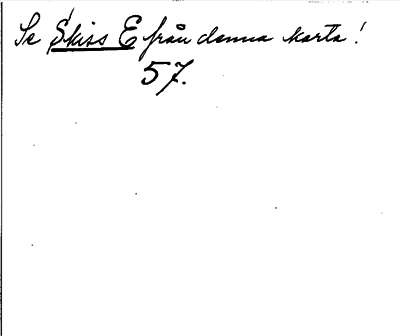 Se Skiss E från denna karta!
57.